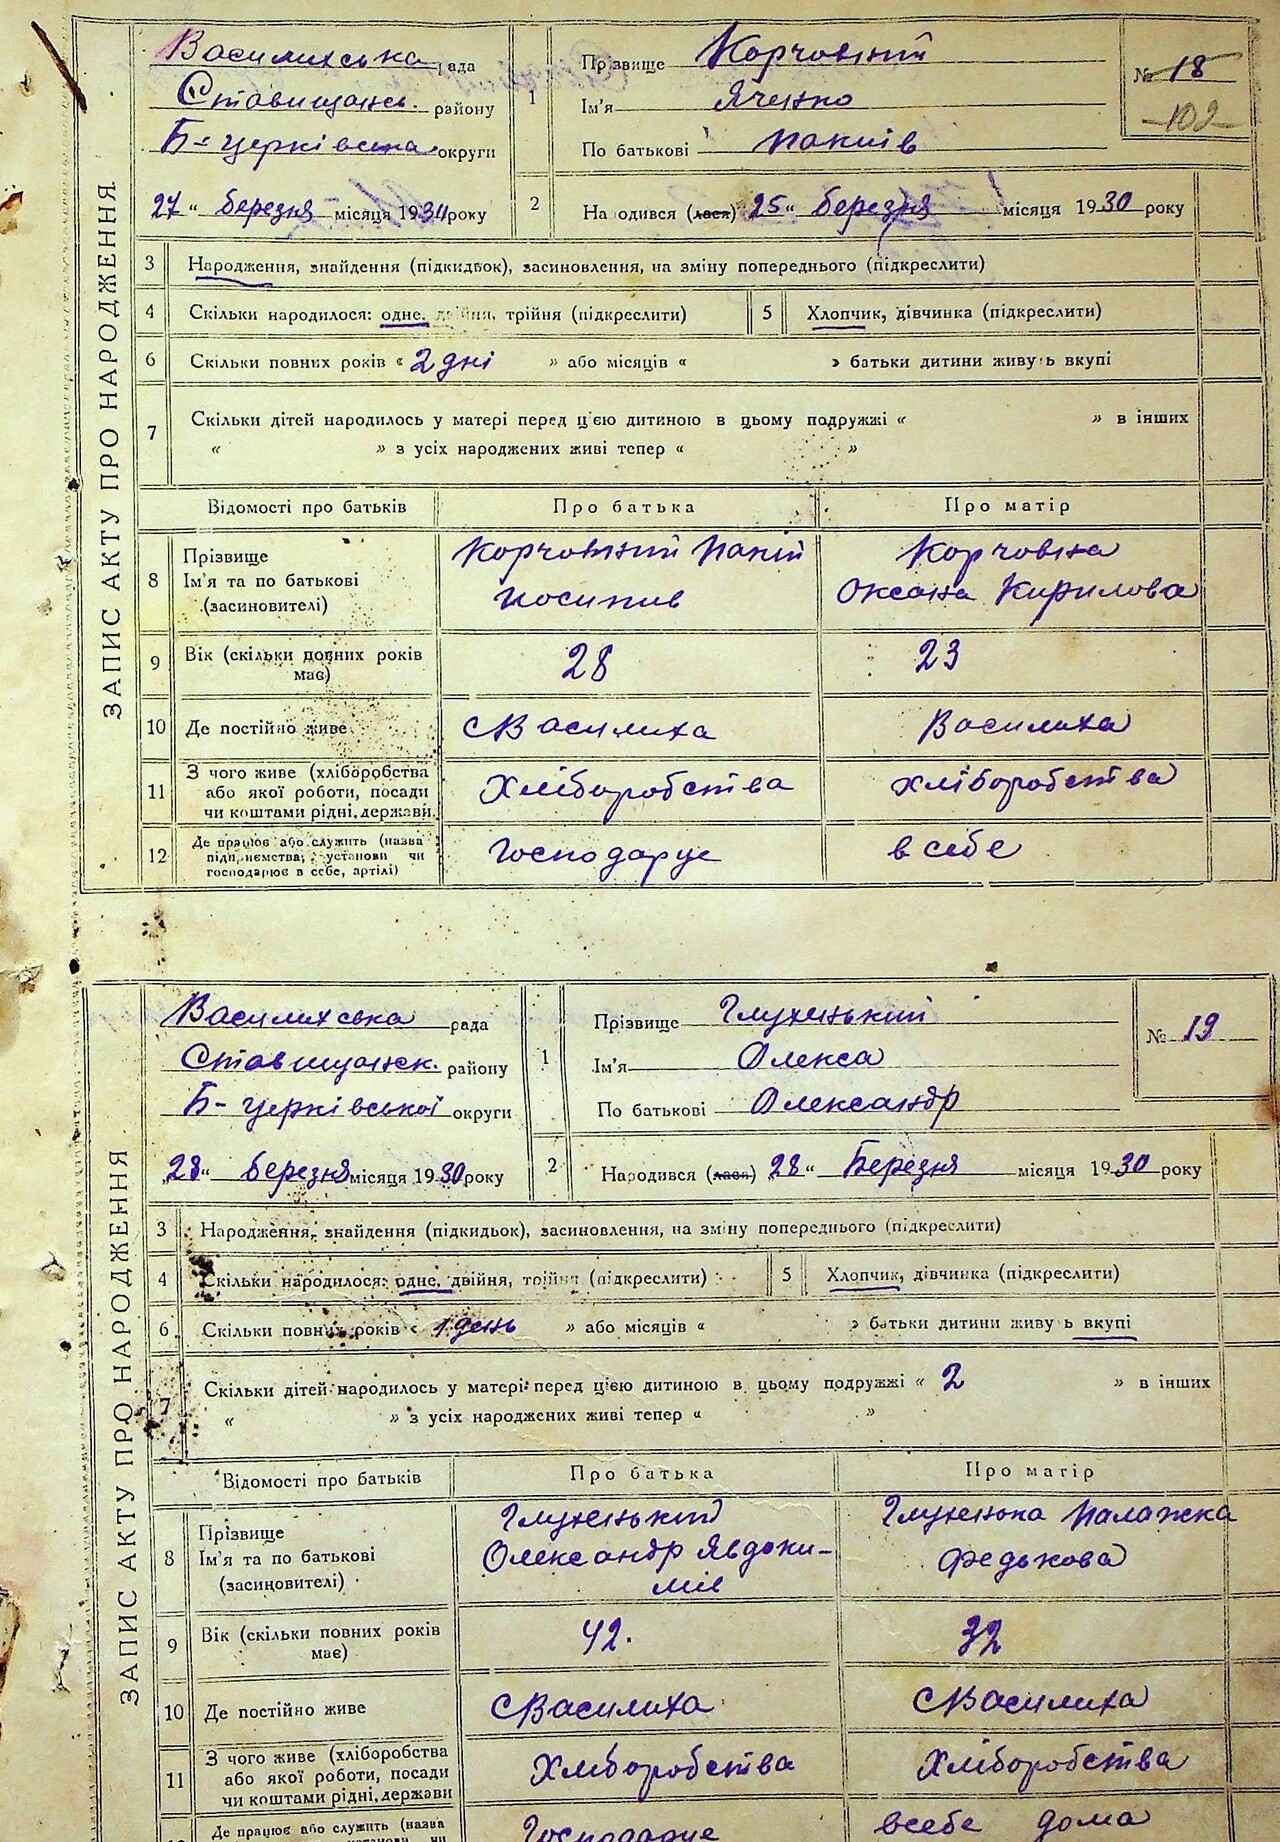 ЗАПИС АКТУ ПРО НАРОДЖЕННЯ
Василихська рада
Ставищанськ. району
Б-церківська округи
27 " березня місяця 1930 року
1 Прізвище Корчовний
Ім'я Яченко
По батькові Покиїв
№ 18
102
2 Народився (лася) 25 " березня місяця 1930 року
3 Народження, знайдення (підкидьок), засиновлення, на зміну попереднього (підкреслити)
4 Скільки народилося: одне, двійня, трійня (підкреслити) 5 Хлопчик, дівчинка (підкреслити)
6 Скільки повних років « 2 дні » або місяців « » батьки дитини живуть вкупі
7 Скільки дітей народилось у матері перед ц'єю дитиною в цьому подружжі « » в інших
« » з усіх народжених живі тепер « »
Відомості про батьків Про батька Про матір
8 Прізвище Ім'я та по батькові (засиновителі) Корчовний Йосипив Корчовна Оксана Кирилова
9 Вік (скільки повних років має) 28 23
10 Де постійно живе с Василиха Василиха
11 З чого живе (хліборобства або якої роботи, посади чи коштами рідні, держави) Хліборобства хліборобства
12 Де працює або служить (назва підприємства, установи чи господарює в себе, артілі) Господарує в себе
ЗАПИС АКТУ ПРО НАРОДЖЕННЯ
Василихська рада
Ставищанск. району
Б-церківської округи
28 " березня місяця 1930 року
1 Прізвище Глухенький
Ім'я Олекса
По батькові Олександр
№ 19
2 Народився (лася) 28 " Березня місяця 1930 року
3 Народження, знайдення (підкидьок), засиновлення, на зміну попереднього (підкреслити)
4 Скільки народилося: одне, двійня, трійня (підкреслити) 5 Хлопчик, дівчинка (підкреслити)
6 Скільки повних років « 1 день » або місяців « » батьки дитини живуть вкупі
7 Скільки дітей народилось у матері перед ц'єю дитиною в цьому подружжі « 2 » в інших
« » з усіх народжених живі тепер « »
Відомості про батьків Про батька Про матір
8 Прізвище Ім'я та по батькові (засиновителі) Глухенький Олександр Явдокимів Глухенька Палажка Федькова
9 Вік (скільки повних років має) 42. 32
10 Де постійно живе с Василиха с Василиха
11 З чого живе (хліборобства або якої роботи, посади чи коштами рідні, держави Хліборобства Хліборобства
Де працює або служить (назва Господарує всебе дома